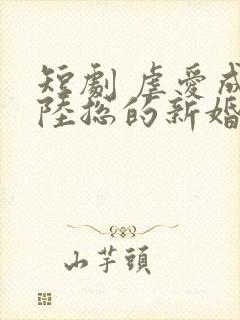 短劇 虐愛成
陸總的新婚
山芋頭